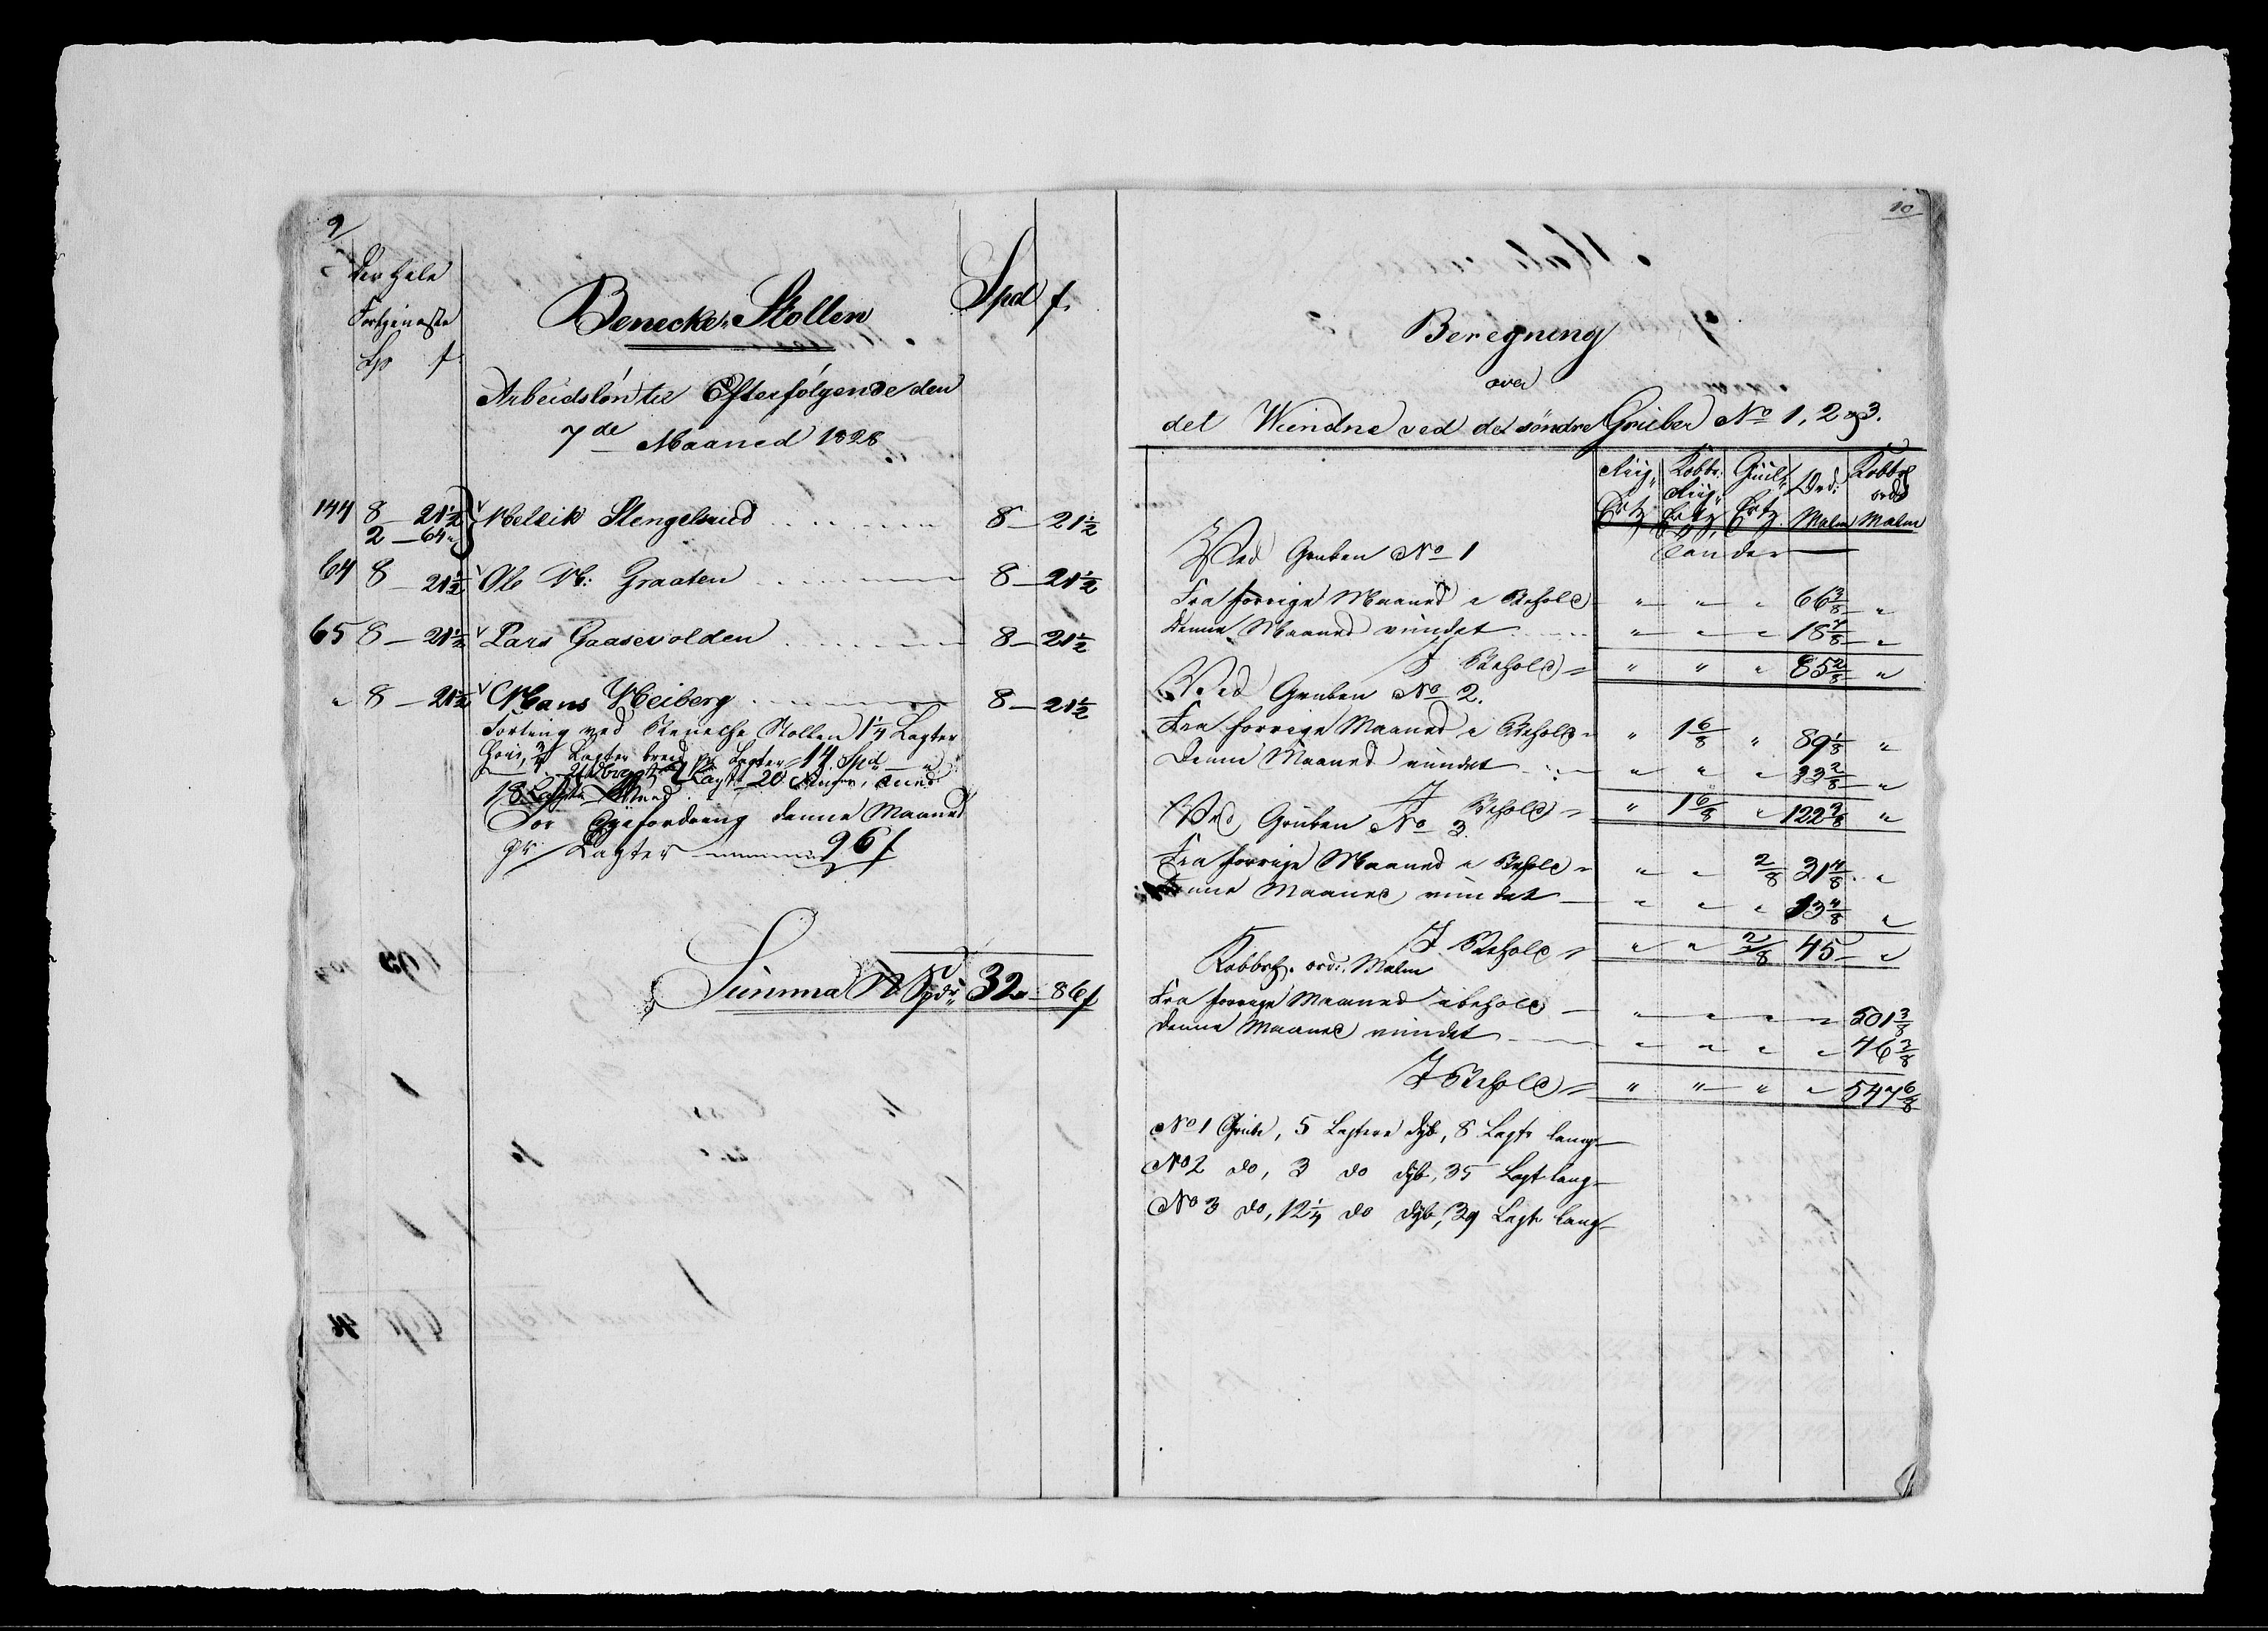 9
Den hele
Fortjeneste
Sp f
Benecke Stollen
Spd f.
Arbeidsløn til Efterfølgende den
7de Maaned 1828
144 8 – 21½ Melkik Stengelsrud 8 – 21½
2 – 64
64 8 – 21½ Ole M: Graaten 8 – 21½
65 8 – 21½ Lars Gaasevolden 8 – 21½
" 8 – 21½ Hans Heiberg 8 – 21½
Forting ved Stollen 1¼ Lagter
Lagter bred pr Lagter 14 Spd
Udbragt Lagt 20
18 Lagter
For denne Maaned
pr Lagter 96 f
Summa Spdr 32 – 86 f
10
Beregning
over
det Vundne ved de søndre Gruber No 1, 2 og 3.
Ertz Ertz Ertz Malm Malm
Tønder
Ved Gruben No 1
Fra forrige Maaned i Behold " " " 66 3/8 "
Denne Maaned vundet " " " 18 7/8 "
I Behold " " " 85 2/8 "
Ved Gruben No 2.
Fra forrige Maaned i Behold " 1 6/8 " 89 1/8 "
Denne Maaned vundet " " " 33 2/8 "
I Behold " 1 6/8 " 122 3/8 "
Ved Gruben No 3.
Fra forrige Maaned i Behold " " 2/8 31 4/8 "
Denne Maaned vundet " " " 13 4/8 "
I Behold " " 2/8 45 "
Kobbrh. ord. Malm
Fra forrige Maaned i behold " " " " 501 3/8
Denne Maaned vundet " " " " 46 3/8
I Behold " " " " 547 6/8
No 1 Grube, 5 Lagter dyb, 8 Lagtr lang
No 2 do, 3 do dyb, 35 Lagt lang
No 3 do, 12¼ do dyb, 39 Lagtr lang